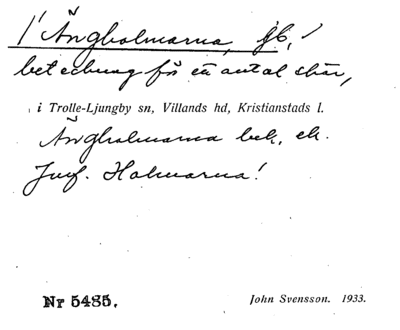 1 Ängholmarna,
beteckning på ett antal skär,
i Trolle-Ljungby sn, Villands hd, Kristianstads l.
Ängholmarna bek, ek.
Jmf. Holmarna!
Nr 5485.
John Svensson. 1933.